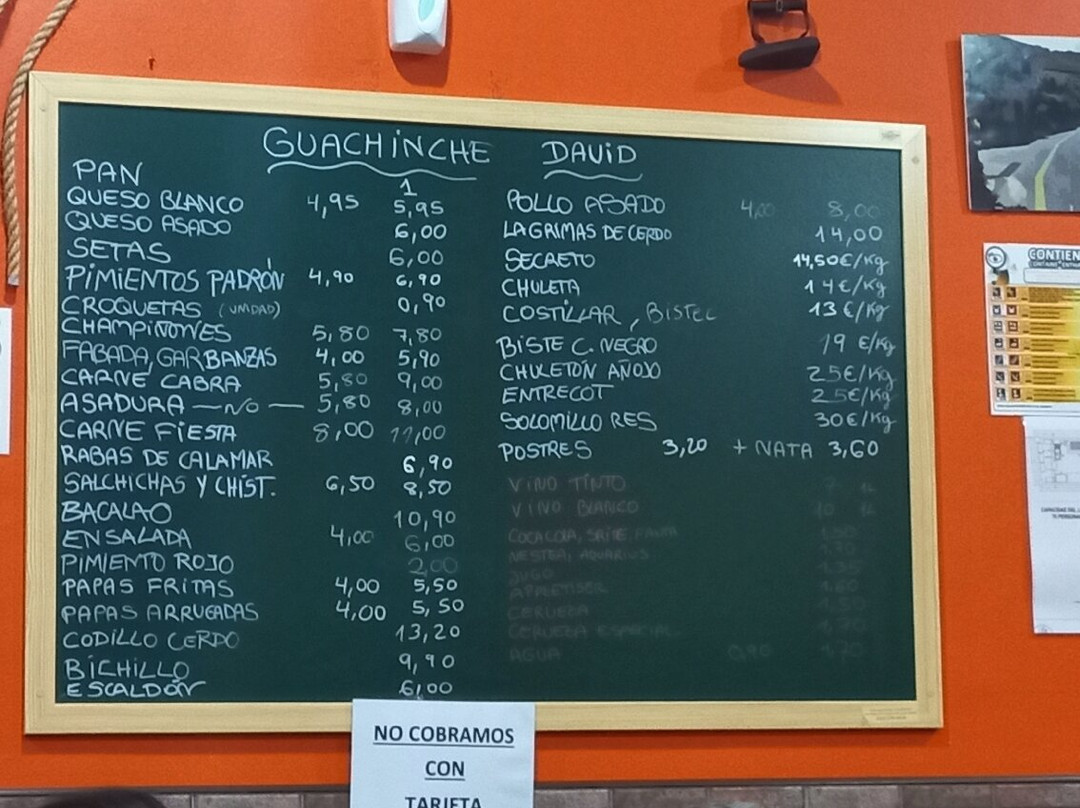 GUACHINCHE DAVID
PAN 1
QUESO BLANCO 4,95 5,95
QUESO ASADO 6,00
SETAS 6,00
PIMIENTOS PADRÓN 4,90 6,90
CROQUETAS (UNIDAD) 0,90
CHAMPIÑONES 5,80 7,80
FABADA, GARBANZAS 4,00 5,90
CARNE CABRA 5,80 9,00
ASADURA — NO — 5,80 8,00
CARNE FIESTA 8,00 11,00
RABAS DE CALAMAR 6,90
SALCHICHAS Y CHIST. 6,50 8,50
BACALAO 10,90
ENSALADA 4,00 6,00
PIMIENTO ROJO 2,00
PAPAS FRITAS 4,00 5,50
PAPAS ARRUGADAS 4,00 5,50
CODILLO CERDO 13,20
BICHILLO 9,90
ESCALDÓN 6,00
POLLO ASADO 4,00 8,00
LAGRIMAS DE CERDO 14,00
SECRETO 14,50€/Kg
CHULETA 14€/Kg
COSTILLAR, BISTEC 13€/Kg
BISTE C. NEGRO 19 €/Kg
CHULETON AÑOJO 25€/Kg
ENTRECOT 25€/Kg
SOLOMILLO RES 30€/Kg
POSTRES 3,20 + NATA 3,60
VINO TINTO
VINO BLANCO
COCACOLA, SPITE, FANTA
NESTEA, AQUARIUS
JUGO
APPLETISER
CERVEZA
CERVEZA ESPECIAL
AGUA 0,90
NO COBRAMOS
CON
TARJETA
CONTIEN